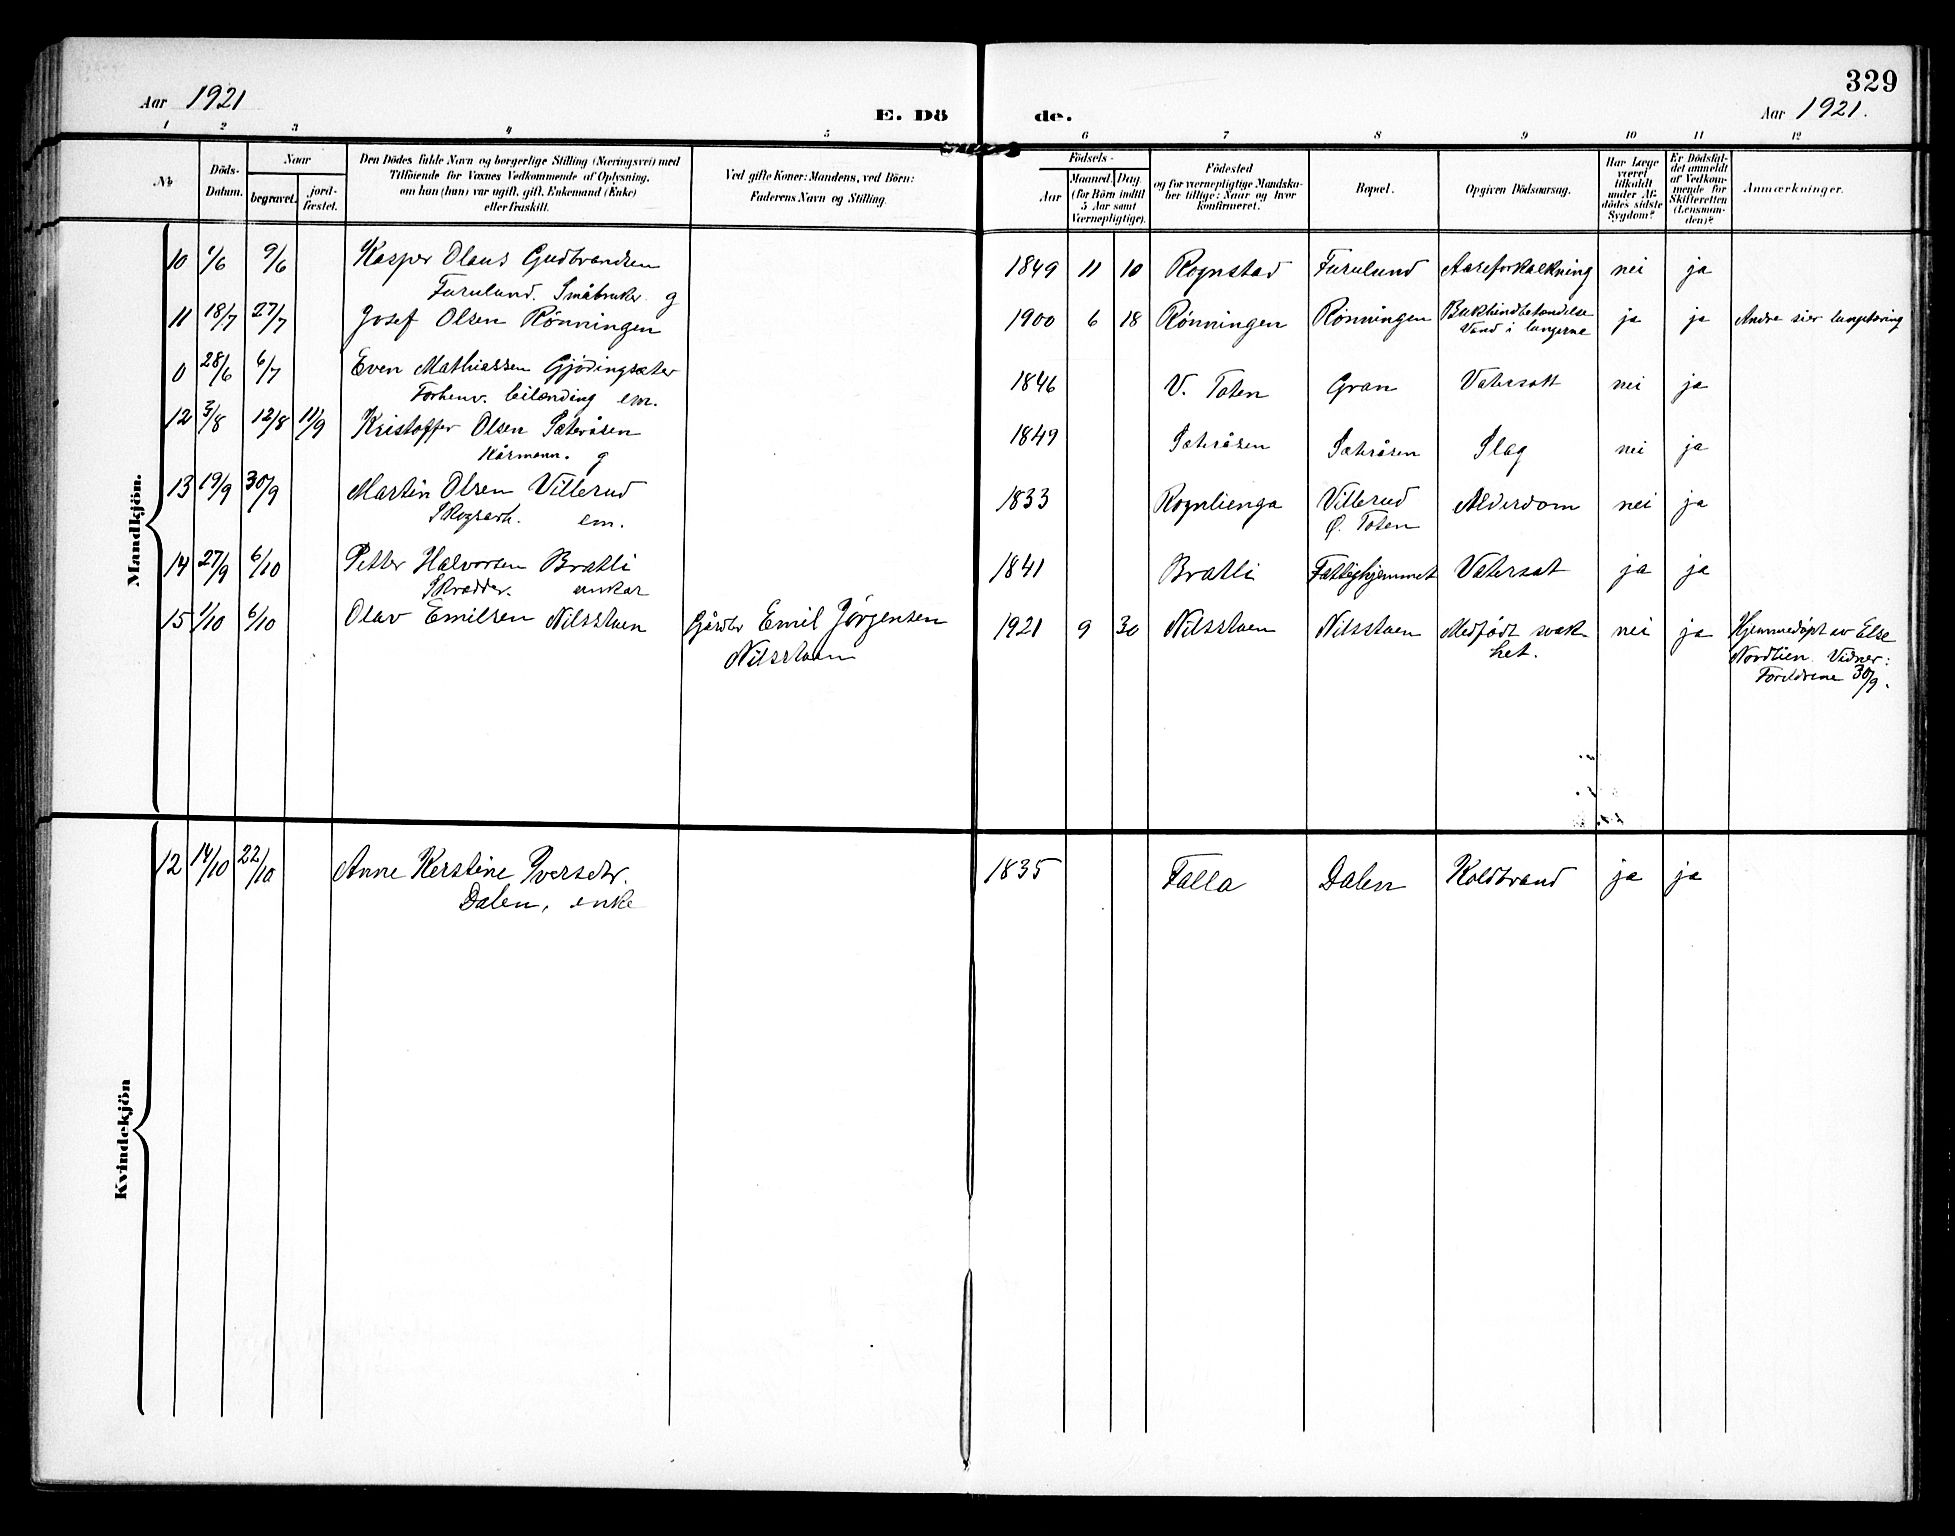 329
Aar 1921
E. Dö de.
Aar 1921.
1 2 3 4 5 6 7 8 9 10 11 12
No
Döds-Datum.
Naar
begravet.
jord-fæstet.
Den Dödes fulde Navn og borgerlige Stilling (Næringsvei) med
Tilföiende for Voxnes Vedkommende af Oplysning,
om han (hun) var ugift, gift, Enkemand (Enke)
eller fraskilt.
Ved gifte Koner: Mandens, ved Börn:
Faderens Navn og Stilling.
Födsels-
Aar
Maaned. Dag.
(for Börn indtil
5 Aar samt
Værnepligtige).
Födested
og for værnepligtige Mandska-
ber tillige: Naar og hvor
konfirmeret.
Bopæl.
Opgiven Dödsaarsag.
Har Læge
været
tilkaldt
under Af-
dödes sidste
Sygdom?
Er Dödsfal-
det anmeldt
af Vedkom-
mende for
Skifteretten
(Lensman-
den)?
Anmærkninger.
Mandkjön.
10 1/6 9/6 Kasper Olaus Gudbrandsen 1849 11 10 Rognstad Furulund Aareforkalkning nei ja
Furulund. Småbruker g
11 18/7 27/7 Josef Olsen Rönningen 1900 6 18 Rönningen Rönningen Bukhindbetændelse ja ja Andre sier lungetæring
Vand i lungerne
0 28/6 6/7 Even Mathiassen Gjödingsæter 1846 V. Toten Gran Vatersott nei ja
Forhenv. em.
12 3/8 12/8 11/9 Kristoffer Olsen Sæteråsen 1849 Sæteråsen Sæteråsen Slag nei ja
Kårmann. g
13 19/9 30/9 Martin Olsen Villerud 1833 Rognlienga Villerud Alderdom nei ja
Skogsarb. em. Ø. Toten
14 27/9 6/10 Petter Halvorsen Bratli 1841 Bratli Fattighjemmet Vatersot ja ja
Skrædder. enkem
15 1/10 6/10 Olav Emilsen Nilsstuen Gårdbr Emil Jörgensen 1921 9 30 Nilsstuen Nilsstuen Medfødt svak- nei ja Hjemmedöpt av Else
Nilsstuen het. Nordlien. Vidner:
Foreldrene 30/9.
Kvindekjön
12 14/10 22/10 Anne Kerstine Iversdtr. 1835 Falla Dalen Koldbrand ja ja
Dalen, enke